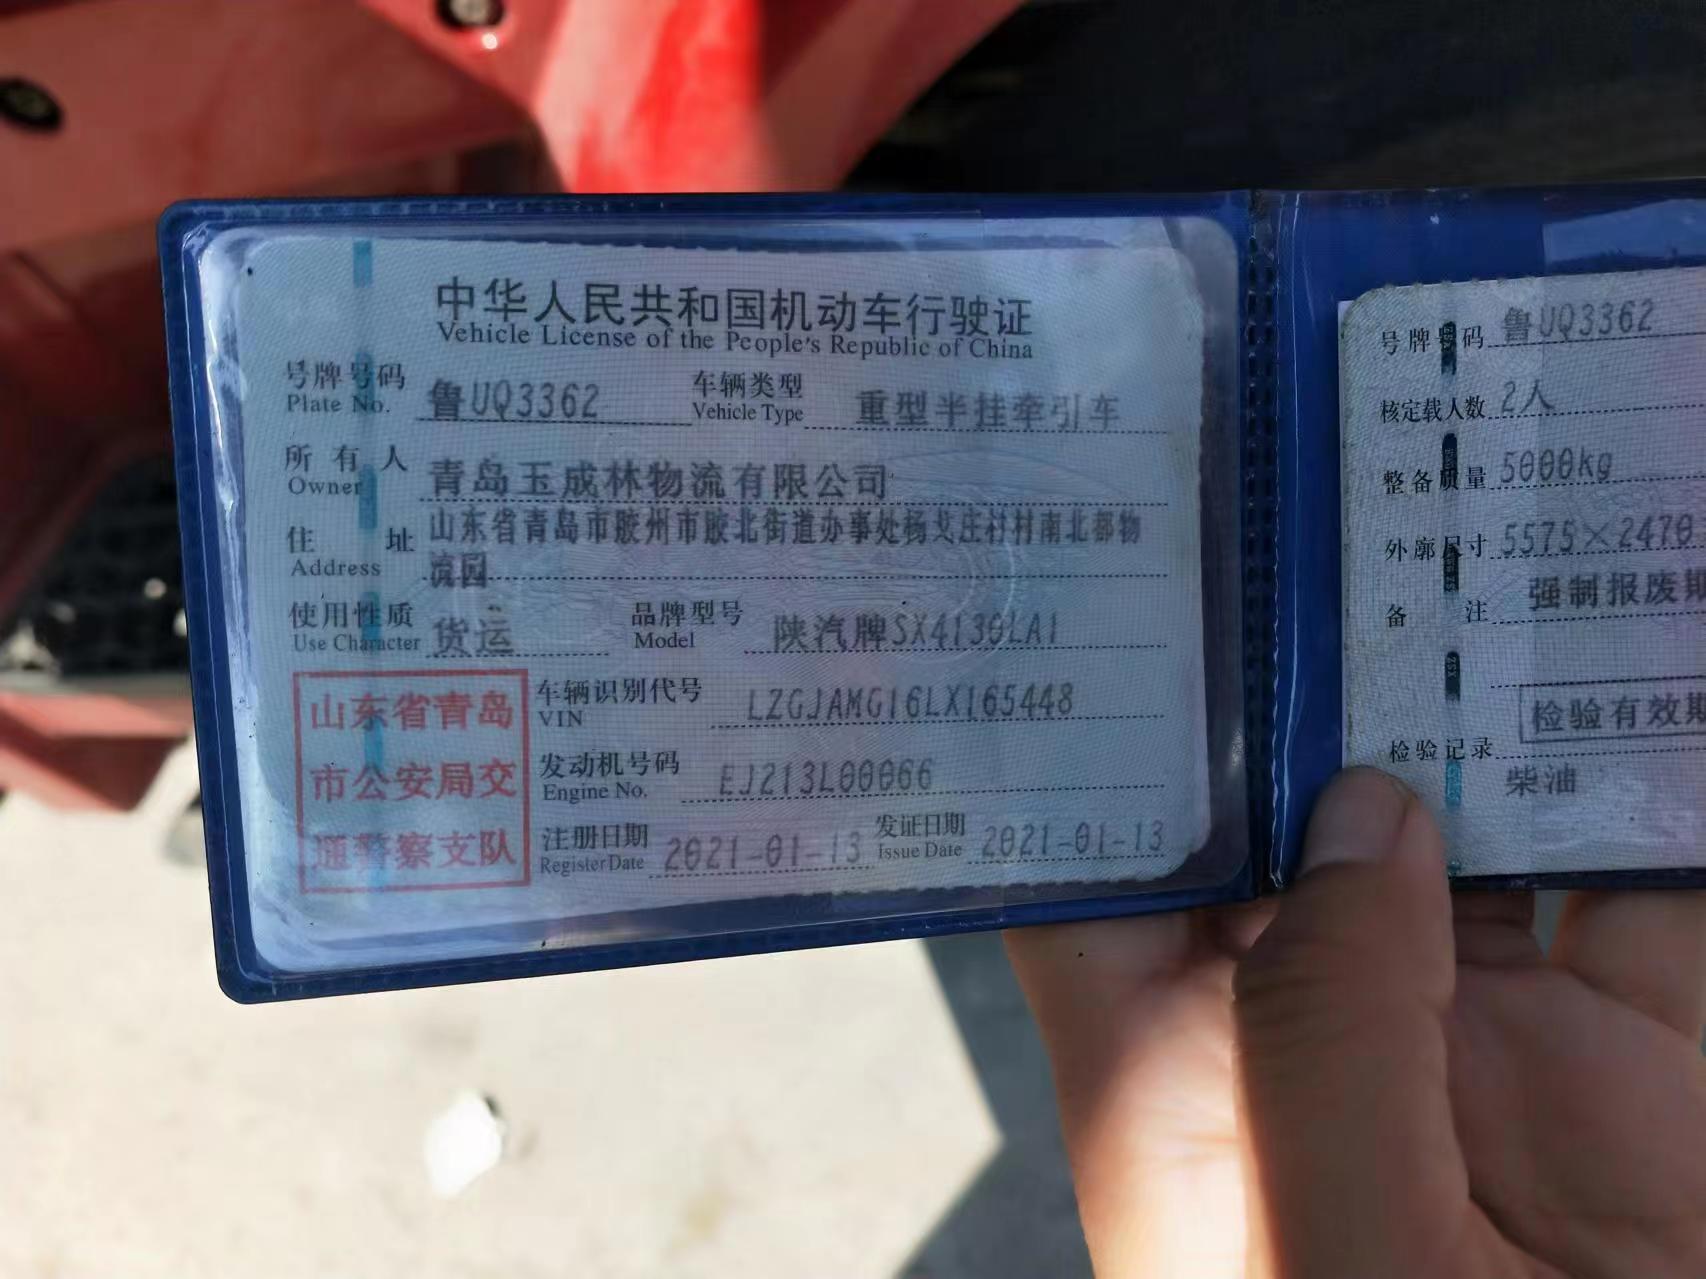 中华人民共和国机动车行驶证
Vehicle License of the People's Republic of China
号牌号码 鲁UQ3362 车辆类型 重型半挂牵引车
Plate No. Vehicle Type
所有人 青岛玉成林物流有限公司
Owner
住址 山东省青岛市胶州市胶北街道办事处杨戈庄村村南北部物
Address 流园
使用性质 货运 品牌型号 陕汽牌SX4130LA1
Use Character Model
车辆识别代号 LZGJAMG16LX165448
VIN
发动机号码 EJ213L00066
Engine No.
注册日期 2021-01-13 发证日期 2021-01-13
Register Date Issue Date
山东省青岛
市公安局交
通警察支队
号牌号码 鲁UQ3362
核定载人数 2人
整备质量 5000kg
外廓尺寸 5575×2470
备注 强制报废期
检验有效期
检验记录
柴油